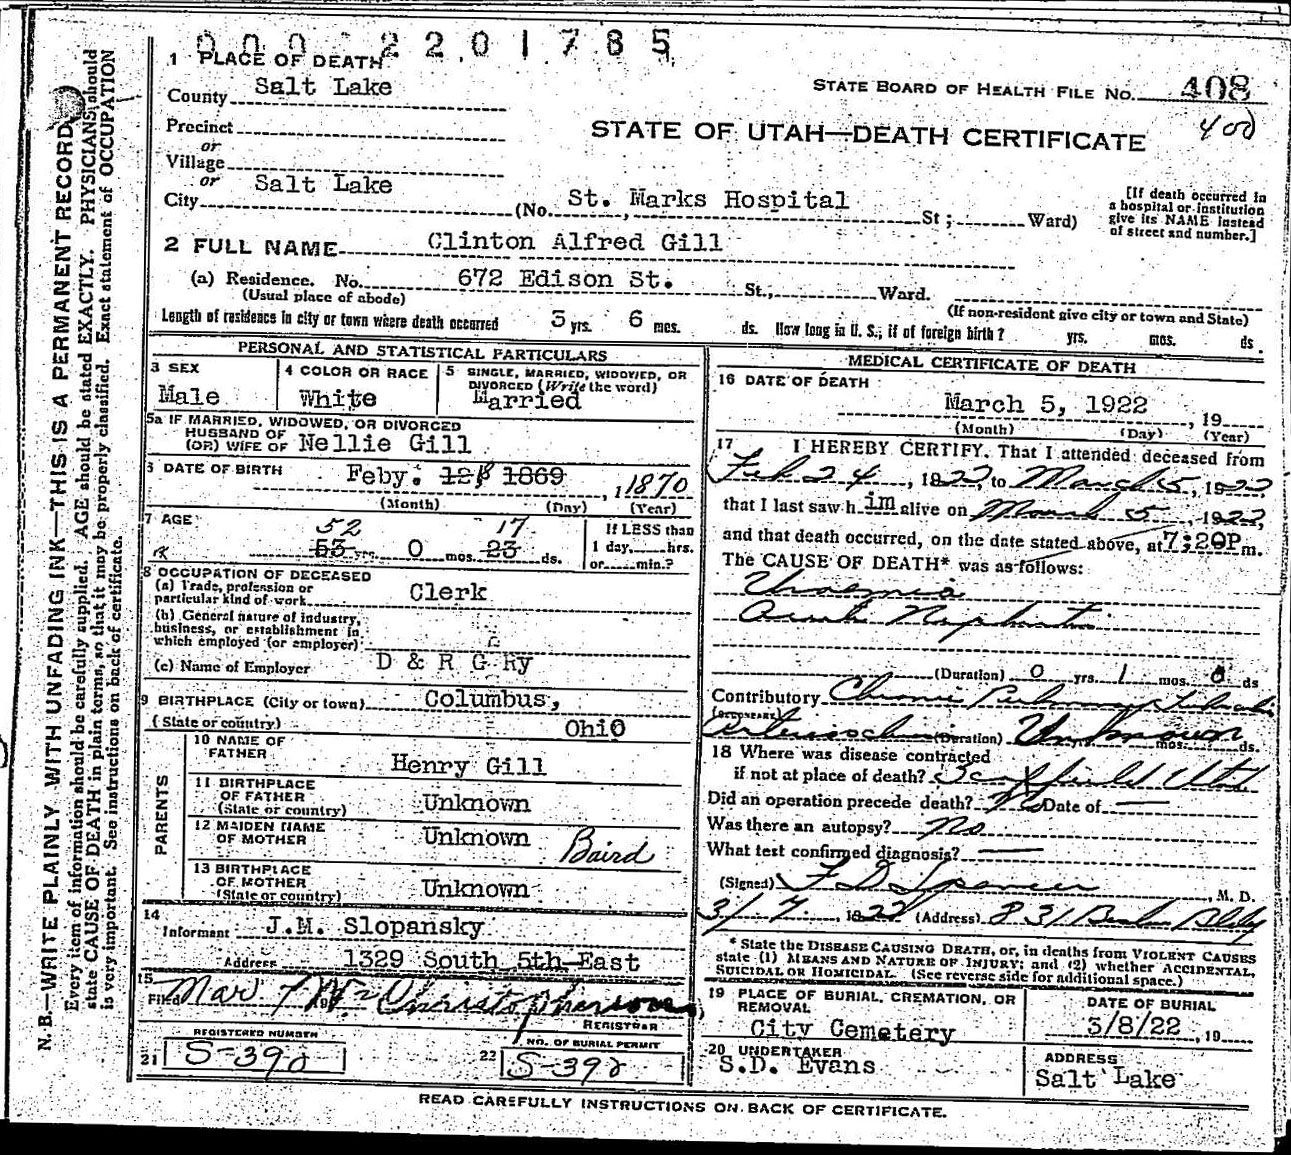 000 2201785
1 PLACE OF DEATH
County Salt Lake
STATE BOARD OF HEALTH FILE NO. 408
400
Precinct
or
Village
or
City Salt Lake
STATE OF UTAH—DEATH CERTIFICATE
(No. St. Marks Hospital St; Ward)
[If death occurred in
a hospital or institution
give its NAME instead
of street and number.]
2 FULL NAME Clinton Alfred Gill
(a) Residence. No. 672 Edison St. St., Ward.
(Usual place of abode)
(If non-resident give city or town and State)
Length of residence in city or town where death occurred 3 yrs. 6 mos. ds. How long in U. S., if of foreign birth? yrs. mos. ds.
PERSONAL AND STATISTICAL PARTICULARS
3 SEX
Male
4 COLOR OR RACE
White
5 SINGLE, MARRIED, WIDOWED, OR
DIVORCED (Write the word)
Married
5a IF MARRIED, WIDOWED, OR DIVORCED
HUSBAND OF
(OR) WIFE OF Nellie Gill
6 DATE OF BIRTH Feby. 12 1869, 1870
(Month) (Day) (Year)
7 AGE
52 17
53 yrs. 0 mos. 23 ds.
If LESS than
1 day, hrs.
or min.?
8 OCCUPATION OF DECEASED
(a) Trade, profession or
particular kind of work Clerk
(b) General nature of industry,
business, or establishment in
which employed (or employer)
(c) Name of Employer D & R G Ry
9 BIRTHPLACE (City or town) Columbus,
(State or country) Ohio
PARENTS
10 NAME OF
FATHER Henry Gill
11 BIRTHPLACE
OF FATHER
(State or country) Unknown
12 MAIDEN NAME
OF MOTHER Unknown Baird
13 BIRTHPLACE
OF MOTHER
(State or country) Unknown
14
Informant J.M. Slopansky
Address 1329 South 5th East
15
Filed Mar 7 Christopherson
REGISTRAR
REGISTERED NUMBER
21 S-390
NO. OF BURIAL PERMIT
22 S-392
MEDICAL CERTIFICATE OF DEATH
16 DATE OF DEATH
March 5, 1922, 19
(Month) (Day) (Year)
17 I HEREBY CERTIFY. That I attended deceased from
Feb 24, 1922, to March 5, 1922,
that I last saw him alive on March 5, 1922,
and that death occurred, on the date stated above, at 7:20P m.
The CAUSE OF DEATH* was as follows:
Uraemia
Acute Nephritis
(Duration) 0 yrs. 1 mos. 0 ds
Contributory Chronic Pulmonary Tuberculosis
(SECONDARY)
Arteriosclerosis (Duration) Unknown yrs. mos. ds.
18 Where was disease contracted
if not at place of death? Scofield Utah
Did an operation precede death? No Date of —
Was there an autopsy? No
What test confirmed diagnosis? —
(Signed) F D Spencer, M. D.
3/7, 1922 (Address) 831 Bldg
* State the DISEASE CAUSING DEATH, or, in deaths from VIOLENT CAUSES
state (1) MEANS AND NATURE OF INJURY; and (2) whether ACCIDENTAL,
SUICIDAL OR HOMICIDAL. (See reverse side for additional space.)
19 PLACE OF BURIAL, CREMATION, OR
REMOVAL
City Cemetery
DATE OF BURIAL
3/8/22, 19
20 UNDERTAKER
S.D. Evans
ADDRESS
Salt Lake
READ CAREFULLY INSTRUCTIONS ON BACK OF CERTIFICATE.
N. B.—WRITE PLAINLY WITH UNFADING INK—THIS IS A PERMANENT RECORD
Every item of information should be carefully supplied. AGE should be stated EXACTLY. PHYSICIANS should
state CAUSE OF DEATH in plain terms, so that it may be properly classified. Exact statement of OCCUPATION
is very important. See instructions on back of certificate.